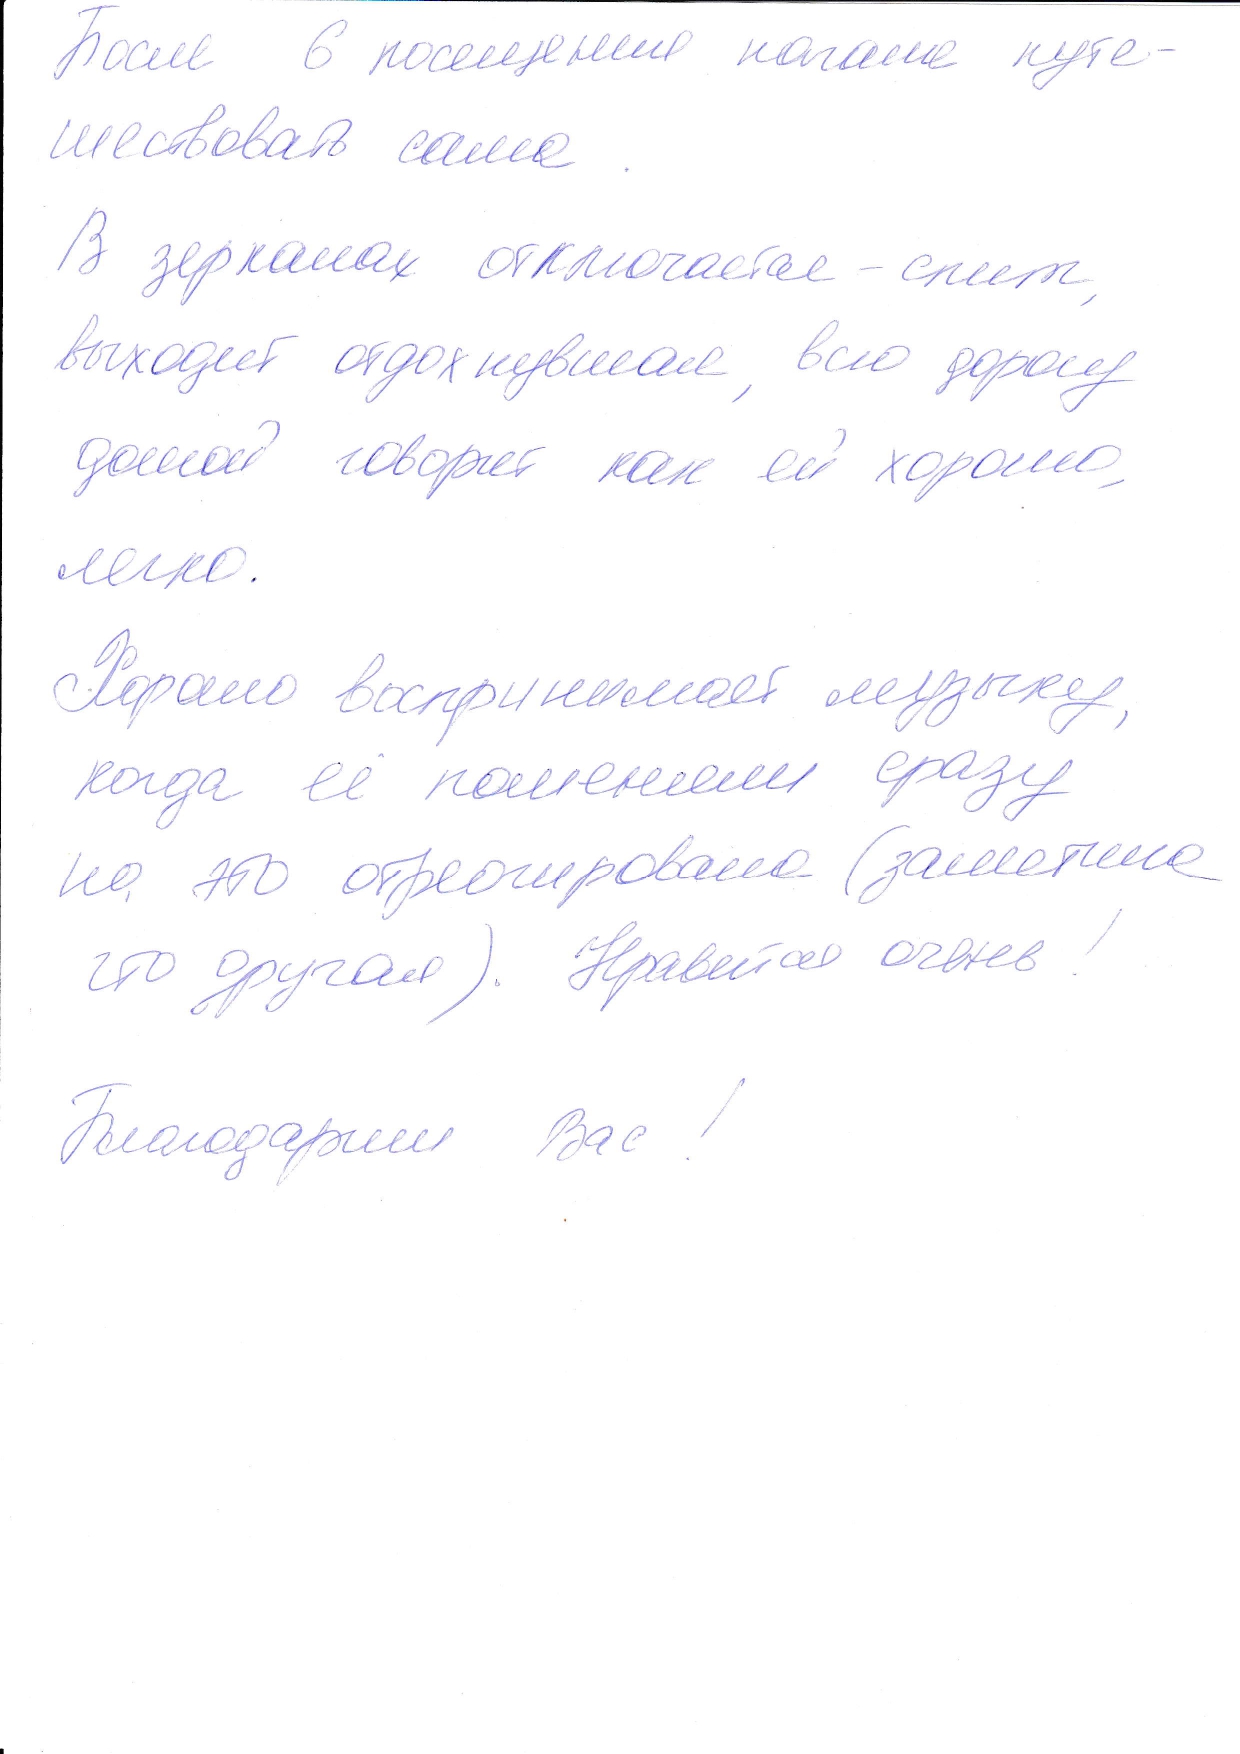 После 6 посещения начала путе-
шествовать сама.
В зеркалах отключается - спит,
выходит отдохнувшая, всю дорогу
домой говорит как ей хорошо,
легко.
Хорошо воспринимает музыку,
когда её поменяли сразу
на это отреагировала (заметила
что другая). Нравится очень!
Благодарим Вас!